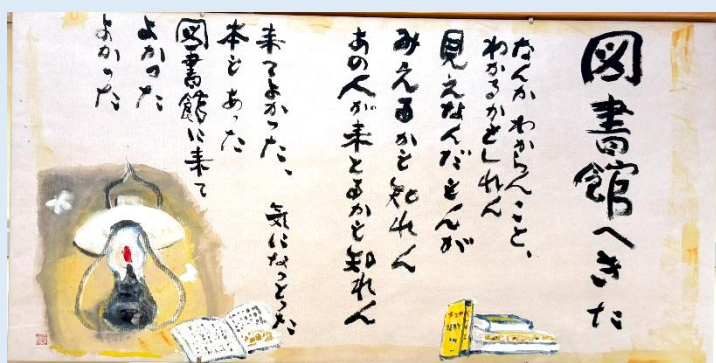 図書館へきた
なんかわからんこと、
わかるかもしれん
見えなんだもんが
みえるかも知れん
あの人が来とるかも知れん
来てよかった、気になっとった
本もあった
図書館に来て
よかった
よかった